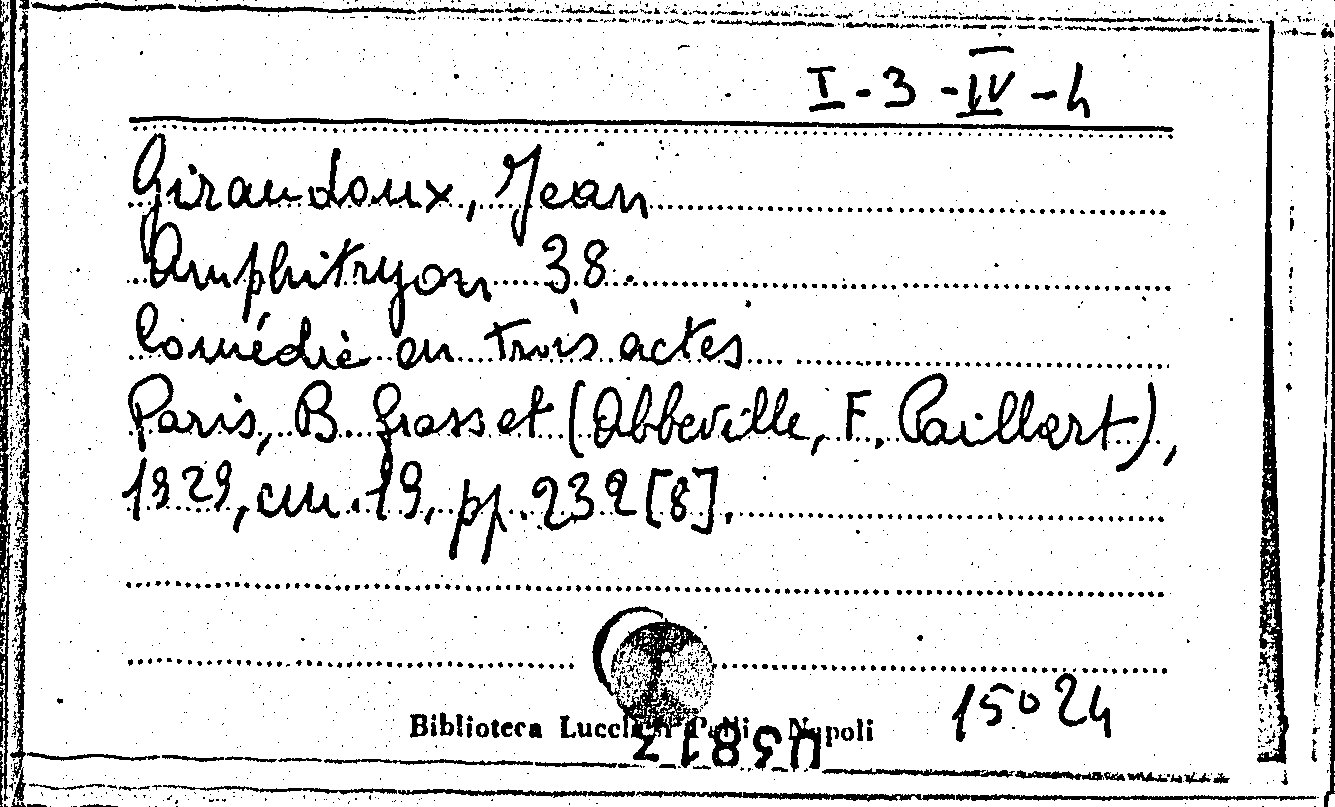 I-3-IV-4
Giraudoux, Jean
Amphitryon 38.
Comédie en trois actes
Paris, B. Grasset (Abbeville, F. Paillart),
1929, cm. 19, pp. 232 [8].
15024
Biblioteca Lucchesi Palli - Napoli